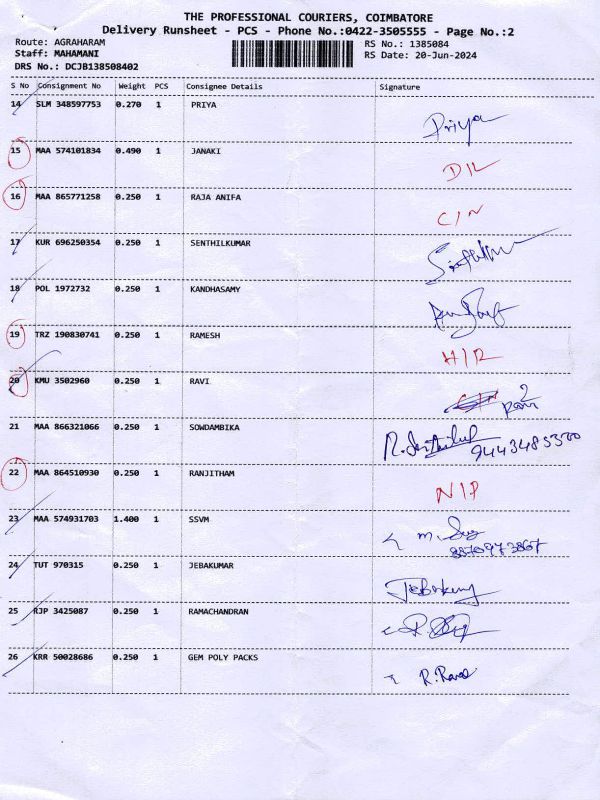 THE PROFESSIONAL COURIERS, COIMBATORE
Delivery Runsheet - PCS - Phone No.:0422-3505555 - Page No.:2
Route: AGRAHARAM
Staff: MAHAMANI
DRS No.: DCJB138508402
RS No.: 1385084
RS Date: 20-Jun-2024
S No Consignment No Weight PCS Consignee Details Signature
14 SLM 348597753 0.270 1 PRIYA Priya
15 MAA 574101834 0.490 1 JANAKI D/L
16 MAA 865771258 0.250 1 RAJA ANIFA C/N
17 KUR 696250354 0.250 1 SENTHILKUMAR
18 POL 1972732 0.250 1 KANDHASAMY
19 TRZ 190830741 0.250 1 RAMESH H/R
20 KMU 3502960 0.250 1 RAVI
21 MAA 866321066 0.250 1 SOWDAMBIKA 9443485320
22 MAA 864510930 0.250 1 RANJITHAM N/P
23 MAA 574931703 1.400 1 SSVM 8870973867
24 TUT 970315 0.250 1 JEBAKUMAR
25 RJP 3425087 0.250 1 RAMACHANDRAN
26 KRR 50028686 0.250 1 GEM POLY PACKS